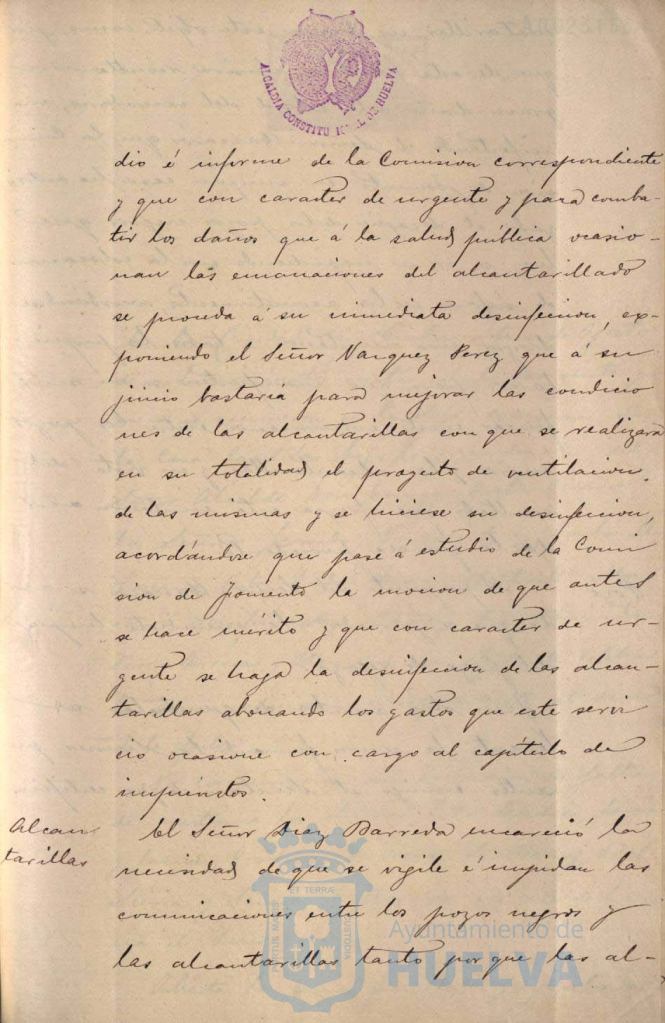 ALCALDIA CONSTITU   AL DE HUELVA
dio é informe de la Comision correspondiente
y que con caracter de urgente y para comba-
tir los daños que á la salud pública ocasio-
nan las emanaciones del alcantarillado
se proceda á su inmediata desinfeccion, ex-
poniendo el Señor Vazquez Perez que á su
juicio bastaria para mejorar las condicio
nes de las alcantarillas con que se realizara
en su totalidad el proyecto de ventilacion
de las mismas y se hiciese su desinfeccion,
acordándose que pase á estudio de la Comi
sion de Fomento la mocion de que antes
se hace mérito y que con caracter de ur-
gente se haga la desinfeccion de las alcan-
tarillas abonando los gastos que este servi
cio ocasione con cargo al capítulo de
imprevistos.
Alcan
tarillas
El Señor Diaz Barreda encareció la
necesidad de que se vigile é impidan las
comunicaciones entre los pozos negros y
las alcantarillas tanto por que las al-
PORTUS MARIS ET TERRÆ CUSTODIA
Ayuntamiento de
HUELVA